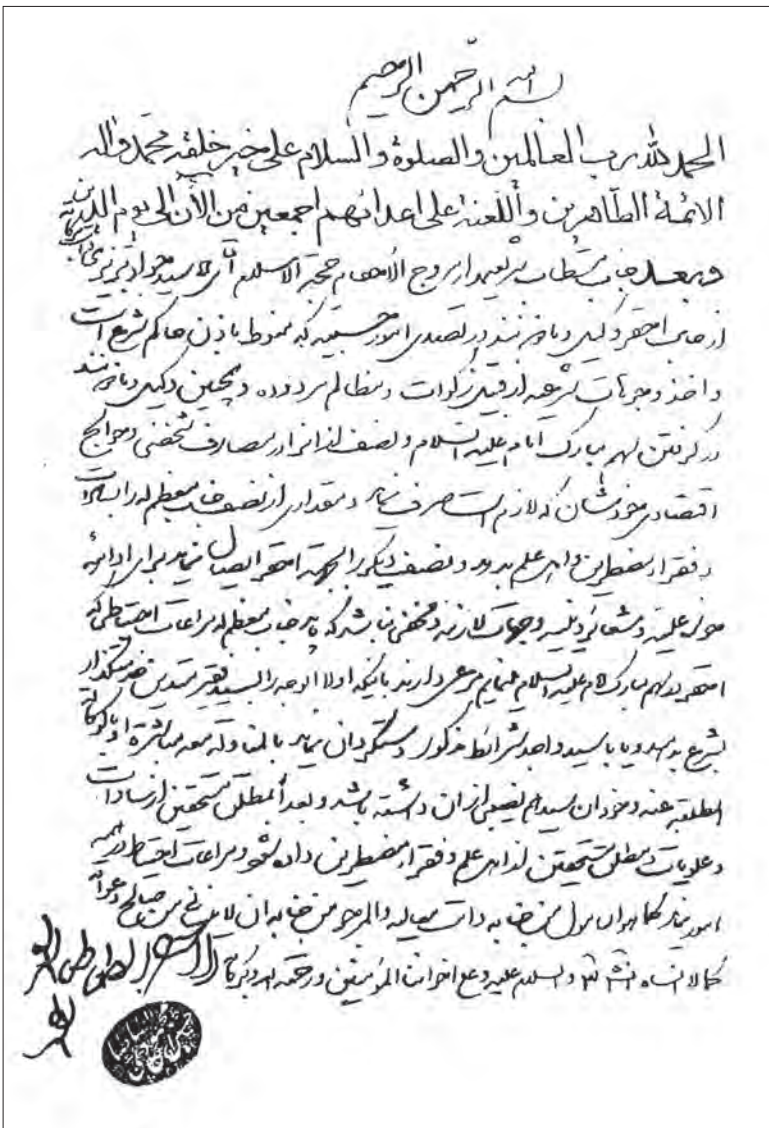 بسم الله الرحمن الرحیم
الحمد لله رب العالمین والصلوة والسلام علی خیر خلقه محمد واله
الائمة الطاهرین واللعنة علی اعدائهم اجمعین من الآن الی یوم الدین
وبعد جناب مستطاب شریعتمدار مروج الاحکام حجة الاسلام آقای سید جواد تبریزی
از جانب احقر وکیل و ماذونند در تصدی امور حسبیه که منوط باذن حاکم شرع است
و اخذ وجوهات شرعیه از قبیل زکوات و مظالم مردوده و همچنین وکیل و ماذونند
در گرفتن سهم مبارک امام علیه السلام و نصف از انرا در مصارف شخصی و حوائج
اقتصادی خودشان که لازم است صرف نماید و مقداری از نصف جناب معظم له را بسادات
و فقراء مضطرین و اهل علم بدهد و نصف دیگر را بجهة احقر ایصال نماید برای اداره
حوزه علمیه و شعائر دینیه و جهات لازمه و مخفی نباشد که باید جناب معظم له مراعات احتیاطی که
احقر در سهم مبارک امام علیه السلام مینمایم مرعی دارند باینکه اولا الوجه را بسید فقیر متدین خدمتگذار
بشرع بدهد و یا با سید واجد شرائط مذکور دستگردان نماید
و خود ان سید هم نصیبی از ان داشته باشد و بعد المطلق مستحقین از سادات
و علویات و مطلق مستحقین از اهل علم و فقراء مضطرین داده شود و مراعات احتیاط در همه
امور نماید کما هو المامول من جنابه دامت معالیه والمرجو من جنابه ان لا ینسانی من صالح دعواته
کما لا انساه انشاء الله والسلام علیه وعلی اخواننا المؤمنین ورحمة الله وبرکاته